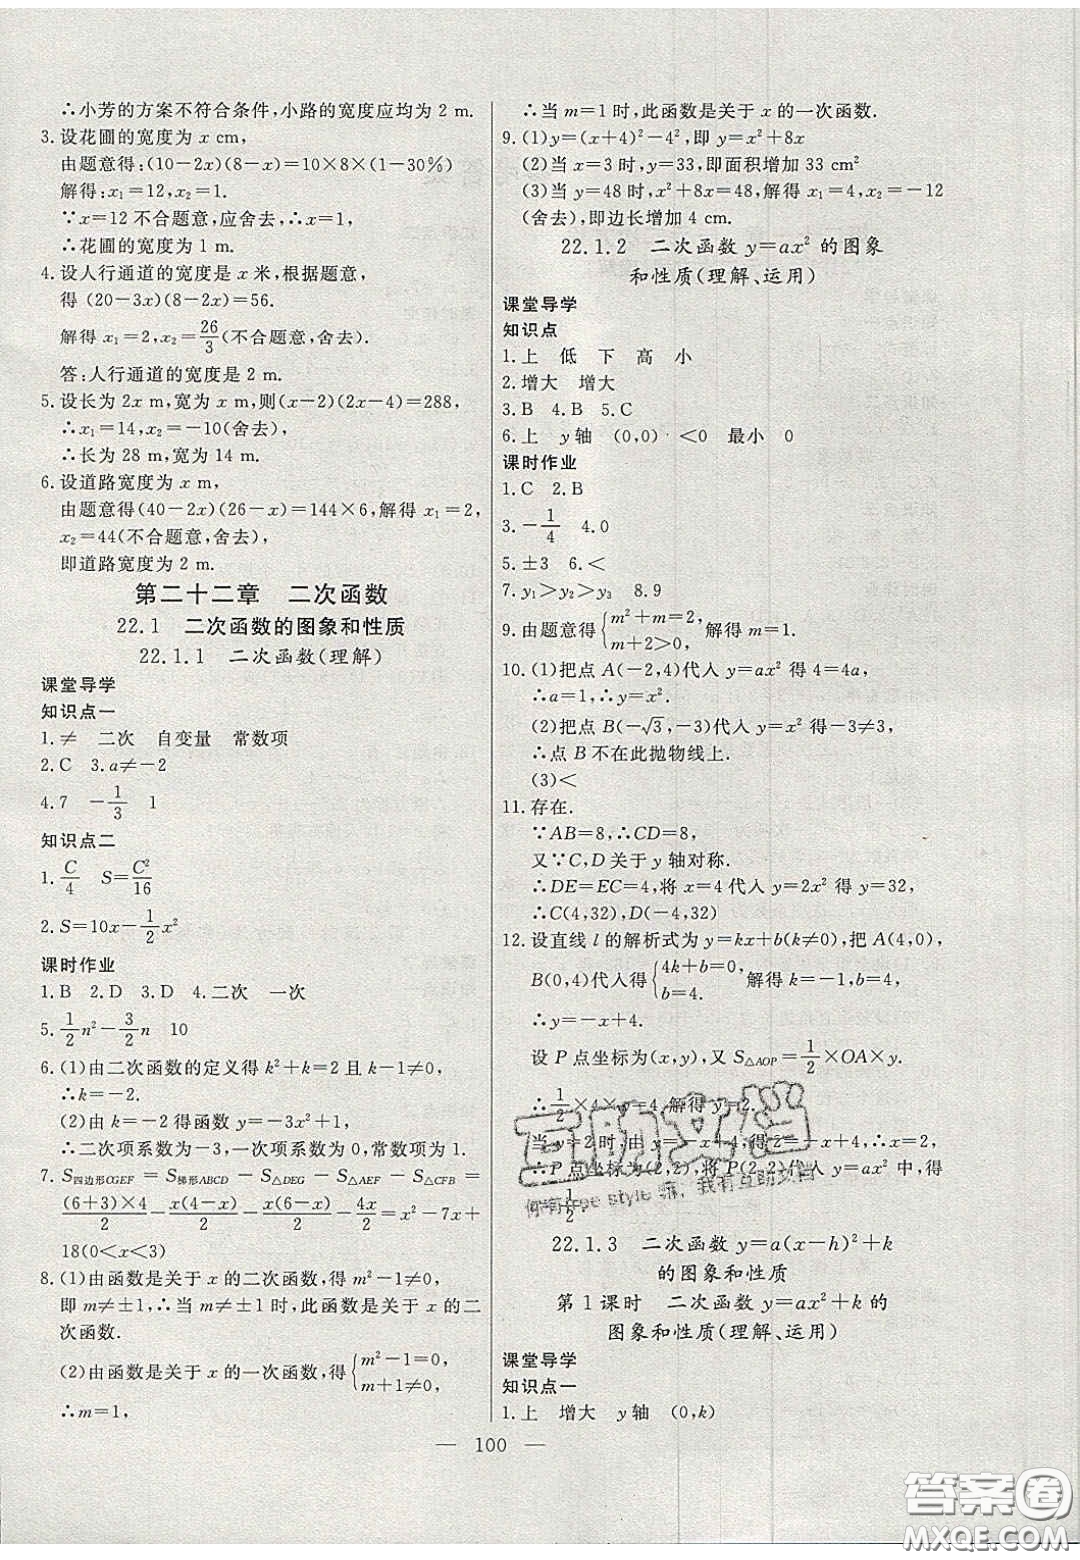 ∴小芳的方案不符合条件,小路的宽度应均为 2 m.
3. 设花圃的宽度为 x cm,
由题意得:(10-2x)(8-x)=10×8×(1-30%)
解得:x₁=12,x₂=1.
∵x=12 不合题意,应舍去,∴x=1,
∴花圃的宽度为 1 m.
4. 设人行通道的宽度是 x 米,根据题意,
得 (20-3x)(8-2x)=56.
解得 x₁=2,x₂=26/3(不合题意,舍去).
答:人行通道的宽度是 2 m.
5. 设长为 2x m,宽为 x m,则(x-2)(2x-4)=288,
∴x₁=14,x₂=-10(舍去),
∴长为 28 m,宽为 14 m.
6. 设道路宽度为 x m,
由题意得(40-2x)(26-x)=144×6,解得 x₁=2,
x₂=44(不合题意,舍去),
即道路宽度为 2 m.
第二十二章 二次函数
22.1 二次函数的图象和性质
22.1.1 二次函数(理解)
课堂导学
知识点一
1. ≠ 二次 自变量 常数项
2. C 3. a≠-2
4. 7 -1/3 1
知识点二
1. C/4 S=C²/16
2. S=10x-1/2x²
课时作业
1. B 2. D 3. D 4. 二次 一次
5. 1/2n²-3/2n 10
6. (1)由二次函数的定义得 k²+k=2 且 k-1≠0,
∴k=-2.
(2)由 k=-2 得函数 y=-3x²+1,
∴二次项系数为-3,一次项系数为 0,常数项为 1.
7. S四边形CGEF = S梯形ABCD - S△DEG - S△AEF - S△CFB =
(6+3)×4/2 - x(4-x)/2 - x(6-x)/2 - 4x/2 = x²-7x+
18(0<x<3)
8. (1)由函数是关于 x 的二次函数,得 m²-1≠0,
即 m≠±1,∴当 m≠±1 时,此函数是关于 x 的二
次函数.
(2)由函数是关于 x 的一次函数,得{m²-1=0,
m+1≠0,
∴m=1,
∴当 m=1 时,此函数是关于 x 的一次函数.
9. (1)y=(x+4)²-4²,即 y=x²+8x
(2)当 x=3 时,y=33,即面积增加 33 cm²
(3)当 y=48 时,x²+8x=48,解得 x₁=4,x=-12
(舍去),即边长增加 4 cm.
22.1.2 二次函数 y=ax² 的图象
和性质(理解、运用)
课堂导学
知识点
1. 上 低 下 高 小
2. 增大 增大
3. B 4. B 5. C
6. 上 y轴 (0,0) <0 最小 0
课时作业
1. C 2. B
3. -1/4 4. 0
5. ±3 6. <
7. y₁>y₂>y₃ 8. 9
9. 由题意得{m²+m=2,
m+2>0,解得 m=1.
10. (1)把点 A(-2,4)代入 y=ax² 得 4=4a,
∴a=1,∴y=x².
(2)把点 B(-√3,-3)代入 y=x² 得-3≠3,
∴点 B 不在此抛物线上.
(3)<
11. 存在.
∵AB=8,∴CD=8,
又∵C,D 关于 y 轴对称.
∴DE=EC=4,将 x=4 代入 y=2x² 得 y=32,
∴C(4,32),D(-4,32)
12. 设直线 l 的解析式为 y=kx+b(k≠0),把 A(4,0),
B(0,4)代入得{4k+b=0,
b=4.解得 k=-1,b=4,
∴y=-x+4.
设 P 点坐标为(x,y),又 S△AOP=1/2×OA×y.
∴1/2×4×y=4,解得 y=2.
当 y=2 时,由 y=-x+4,得 2=-x+4,∴x=2,
∴P 点坐标为(2,2),将 P(2,2)代入 y=ax² 中,得
1/2.
22.1.3 二次函数 y=a(x-h)²+k
的图象和性质
第 1 课时 二次函数 y=ax²+k 的
图象和性质(理解、运用)
课堂导学
知识点一
1. 上 增大 y轴 (0,k)
— 100 —
互助文档
答案圈
MXQE.COM